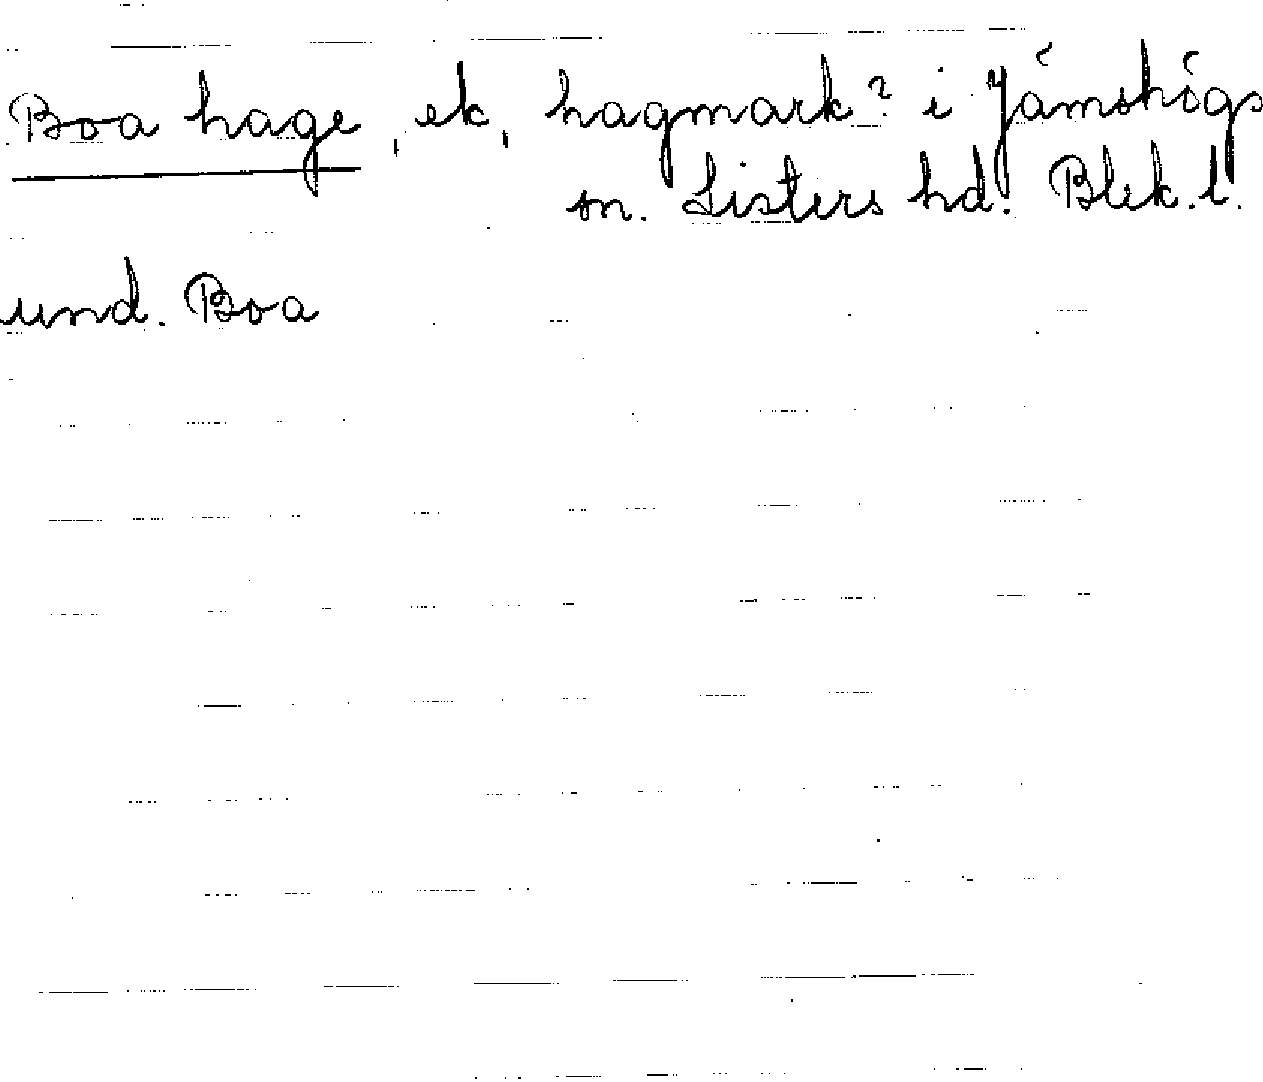 Boa hage, ek, hagmark? i Jämshögs
sn. Listers hd. Blek. l.
und. Boa